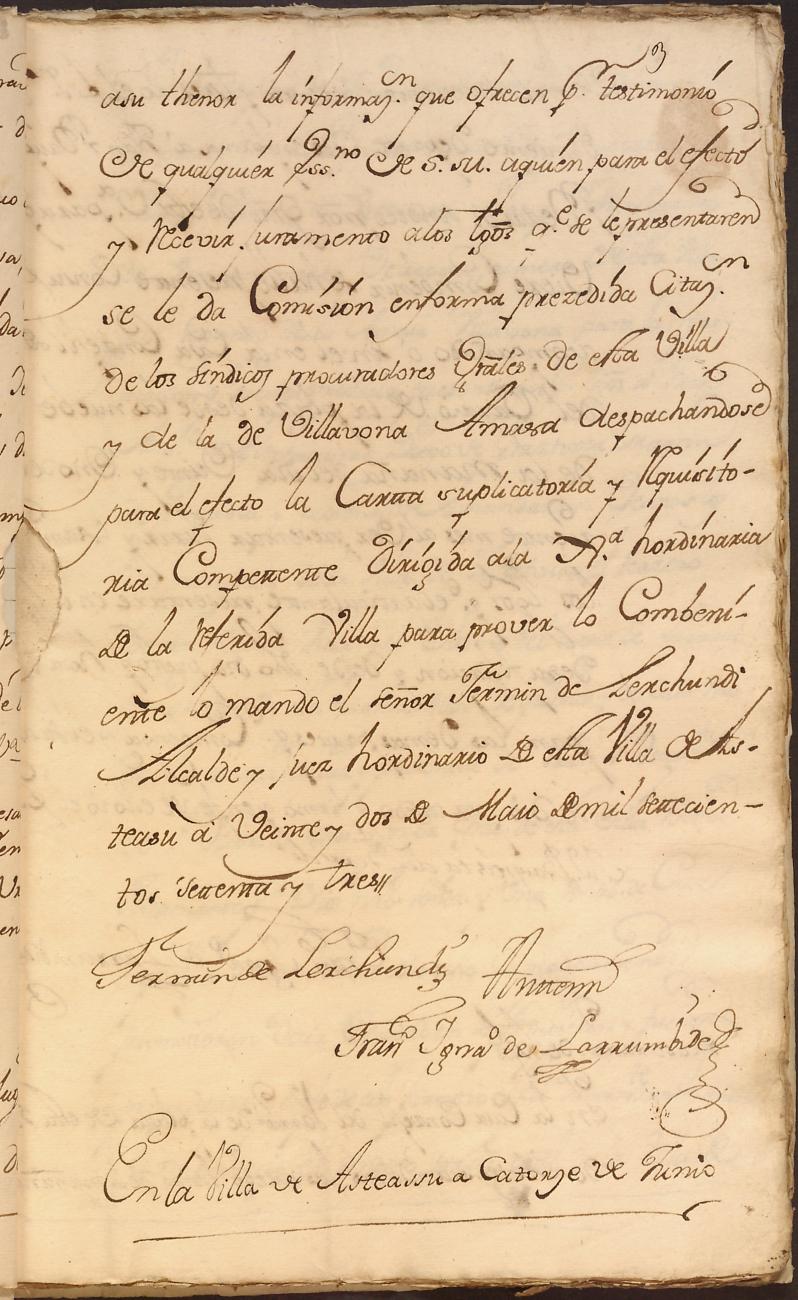 asu thenor la informaz.on que ofrecen p.r testimonio
de qualquier Ess.no de S. M. aquien para el efecto
y Recevir juramento alos tgos q.e se le presentaren
se le da Comision enforma prezedida Citaz.on
de los síndicos procuradores Grales de esta Villa
y de la de Villavona Amasa despachandose
para el efecto la Carta suplicatoria y Requisito-
ria Competente dirigida ala R.a hordinaria
de la referida Villa para prover lo Combeni-
ente lo mando el señor Fermin de Lerchundi
Alcalde y juez hordinario de esta Villa de As-
teasu a Veinte y dos de Maio de mil settecien-
tos settenta y tres
Fermin de Lerchundi Anttemi
Fran.co Ign.o de Larrumbide
En la Villa de Asteassu a Catorze de Junio